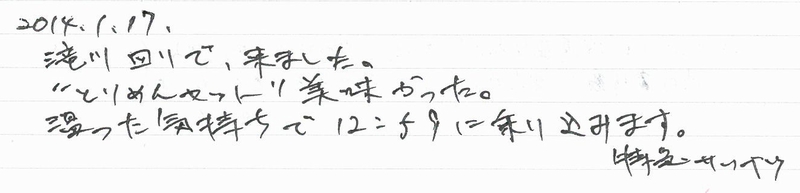 2014.1.17.
滝川回りで、来ました。
"とりめんセット"美味かった。
湿った気持ちで12:59に乗り込みます。